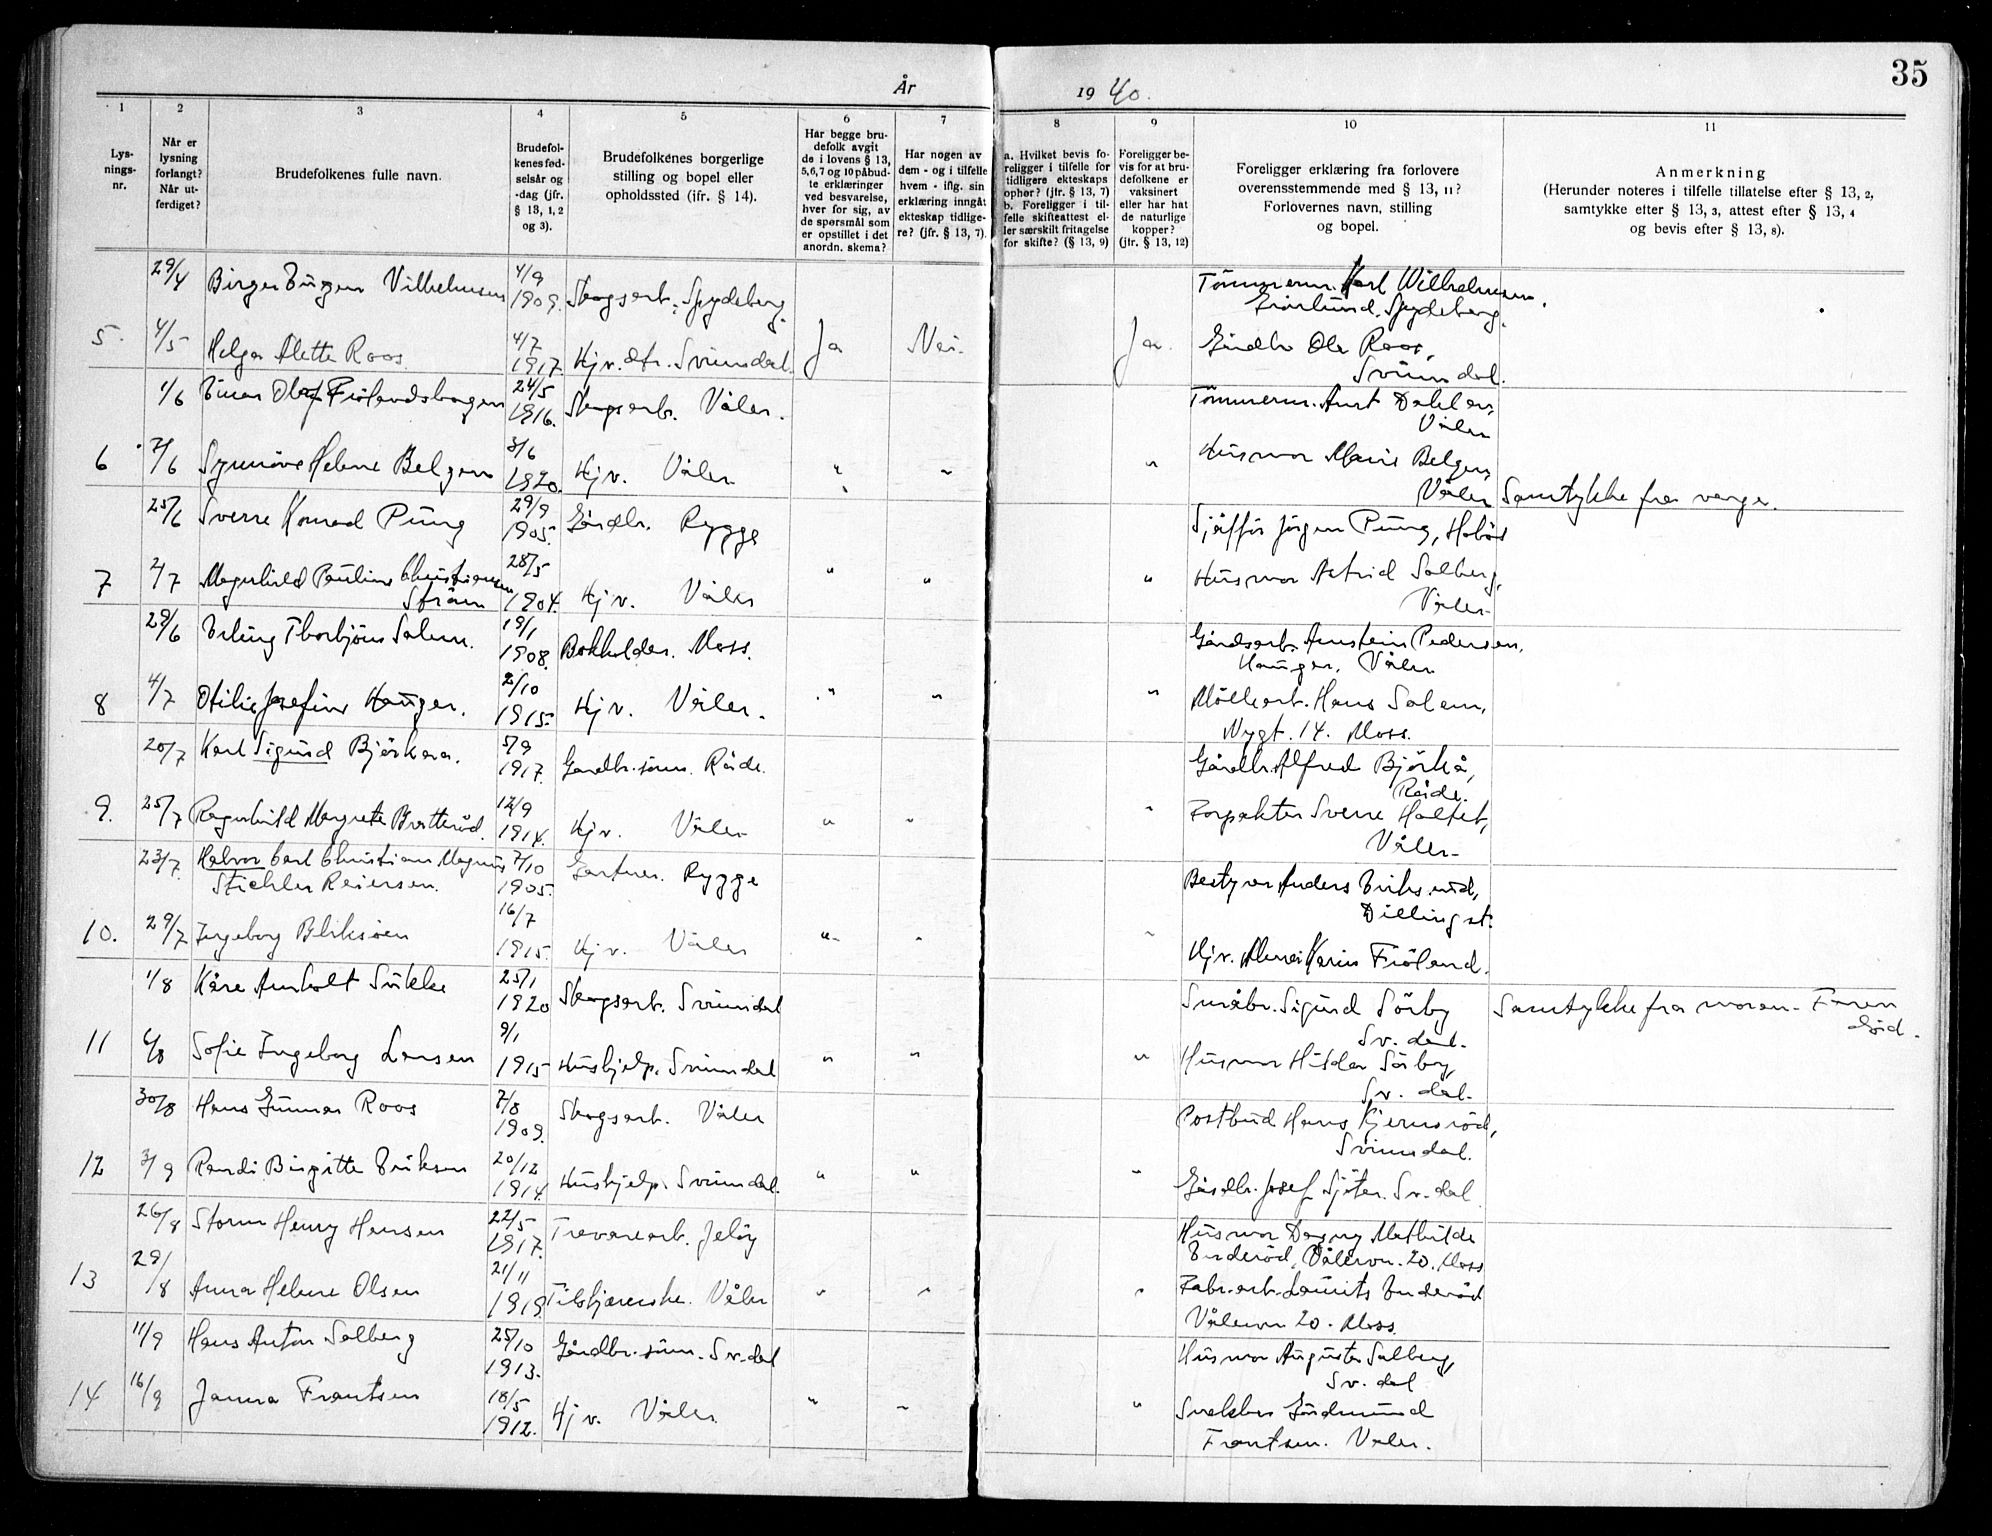 35
År 19 40.
1 2 3 4 5 6 7 8 9 10 11
Lys-
nings-
nr.
Når er
lysning
forlangt?
Når ut-
ferdiget?
Brudefolkenes fulle navn.
Brudefol-
kenes fød-
selsår og
-dag (jfr.
§ 13, 1, 2
og 3).
Brudefolkenes borgerlige
stilling og bopel eller
opholdssted (ifr. § 14).
Har begge bru-
defolk avgit
de i lovens § 13,
5,6,7 og 10 påbud-
te erklæringer
ved besvarelse,
hver for sig, av
de spørsmål som
er opstillet i det
anordn. skema?
Har nogen av
dem - og i tilfelle
hvem - iflg. sin
erklæring inngåt
ekteskap tidlige-
re? (jfr. § 13, 7).
a. Hvilket bevis fo-
religger i tilfelle for
tidligere ekteskaps
ophør? (jfr. § 13, 7)
b. Foreligger i til-
felle skifteattest el-
ler særskilt fritagelse
for skifte? (§ 13, 9)
Foreligger be-
vis for at bru-
defolkene er
vaksinert
eller har hat
de naturlige
kopper?
(jfr. § 13, 12)
Foreligger erklæring fra forlovere
overensstemmende med § 13, 11?
Forlovernes navn, stilling
og bopel.
Anmerkning
(Herunder noteres i tilfelle tillatelse efter § 13, 2,
samtykke efter § 13, 3, attest efter § 13, 4
og bevis efter § 13, 8).
29/4 Birger Eugen Vilhelmsen 4/9 1909. Skogsarb. Spydeberg. Tömmerm. Karl Wilhelmsen,
Spydeberg.
5. 4/5 Helga Alette Roos 4/7 1917. Hjv. dtr. Svinndal. Ja Nei. Ja. Gårdbr. Ole Roos,
Svinndal.
1/6 Einar Olaf Frölandshagen 24/5 1916. Skogsarb. Våler. Tömmerm. Arnt Dahlen,
Våler
6 7/6 Synnöve Helene Belgen 3/6 1920. Hjv. Våler " " " Husmor Marie Belgen,
Våler Samtykke fra verge.
25/6 Sverre Konrad Pung 29/9 1905. Gårdbr. Rygge Sjåfför Jörgen Pung, Hobøl
7 2/7 Magnhild Pauline Christiansen
Ström 28/5 1904. Hjv. Våler " " " Husmor Astrid Solberg,
Våler.
29/6 Erling Thorbjörn Solem. 19/1 1908. Bokholder. Moss. Gårdsarb. Arnstein Pedersen,
Hauger, Våler
8 4/7 Otilie Josefine Hauger. 2/10 1915. Hjv. Våler. " " " Möllearb. Hans Solem,
Nygt. 14. Moss.
20/7 Karl Sigurd Björkaa. 5/9 1917. Gaardbr. sønn. Råde. Gårdbr. Alfred Björkå,
Råde.
9. 25/7 Ragnhild Margrete Bratteröd. 12/9 1914. Hjv. Våler " " " Forpakter Sverre Holtet,
Våler.
23/7. Halvor Carl Christian Magnus
Stickler Reiersen. 7/10 1905. Gartner. Rygge Bestyrer Anders Eriksrud,
Dilling st.
10. 29/7 Ingeborg Bliksöen 16/7 1915. Hjv. Våler " " " Hjv. Karin Fröland.
1/8 Kåre Arnholt Sukke 25/1 1920 Skogsarb. Svinndal Småbr. Sigurd Sörby
Sv. dal. Samtykke fra moren. Faren
död.
11 6/8 Sofie Ingeborg Larsen 9/1 1915 Hushjelp. Svinndal " " " Husmor Hilda Sörby,
Sv. dal.
30/8 Hans Gunnar Roos 7/8 1909. Skogsarb. Våler Postbud Hans Kjernsröd,
Svinndal.
12 3/9 Randi Birgitte Eriksen 20/12 1914. Hushjelp. Svinndal. " " " Gårdbr. Josef Sjöter. Sv. dal
26/8 Storm Henry Hansen 22/5 1917. Trevarearb. Jelöy Husmor Dagny Mathilde
Enderöd, Vålervn. 20. Moss
13 29/8 Anna Helene Olsen 21/11 1919. Tilskjærerske. Våler " " " Fabr. arb. Laurits Enderöd
Vålervn 20. Moss.
11/9 Hans Anton Solberg 25/10 1913. Gårdbr. sönn. Sv. dal Husmor Augusta Solberg,
Sv. dal
14 16/9 Janna Frantsen 18/5 1912. Hjv. Våler. " " " Snekker Gudmund
Frantsen. Våler.